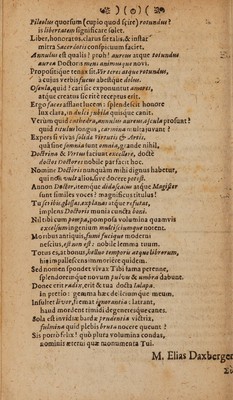 Pileolus quorsum (cupio quod scire) rotundus?
is libertatem significare solet.
Liber, honoratus, clarus sit talis, & instar
mitra Sacerdotis conspicuum faciet.
Annulus est qualis? proh! aureus atque rotundus
aurea Doctoris mens animusque novi.
Propositique tenax sit. Vir teres atque rotundus,
à cujus verbis fucus abestque dolus.
Oscula, quid? cari sic exponuntur amores,
atque creatus sic rité receptus erit.
Ergo faces assunt lucem: splendescit honore
lux clara, in dulci jubila quisque canit.
Verùm quid cathedra, annulus aureus, oscula prosunt?
quid titulus longus, carmina multa juvant?
Expers si vivas solida Virtutis & Artis,
quâ sine somnia sunt omnia, grande nihil,
Doctrina & Virtus faciunt excellere, doctè
doctus Doctores nobile par facit hoc.
Nomine Doctores nunquam mihi dignus habetur,
qui modò alios, sive docere potest.
Annon Doctor, itemque didascalus atque Magister
sunt similes voces? magnificus titulus!
Tu scribis, glossas, explanas atque refutas,
implens Doctoris munis cuncta boni.
Nil tibi cum pompa, pomposa volumina quamvis
excelsum ingenium multiscium que notent.
Moribus antiquis, fumi fucique
nescius, est tibi nobile lemma tuum.
Totus es, at bonus, bellus temporis atque librorum,
his impallescens immoriere quidem.
Sed nomen spondet vivax Tibi fama perenne,
splendoremque novum pulvis & umbra dabunt.
Donec erit radix, erit & tua docta Jalapa.
in pretio: gemma hæc delicium que meum.
Insultet livor, fremat ignorantia: latrant,
haud mordent timidi degeneresque canes.
Sola est invidiæ bardæ prudentia victrix,
fulmina quid plebis bruta nocere queunt?
Sis porrò felix! quò pluta volumina condas,
nominis æterni quæ monumenta Tui.
M. Elias Daxberger